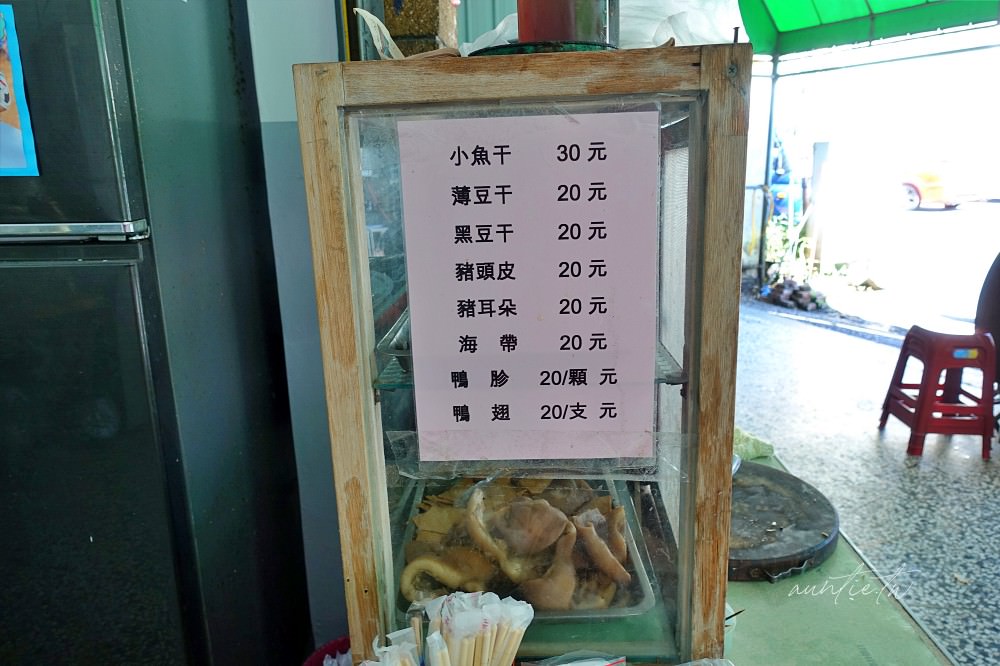 小魚干 30 元
薄豆干 20 元
黑豆干 20 元
豬頭皮 20 元
豬耳朵 20 元
海 帶 20 元
鴨 胗 20/顆 元
鴨 翅 20/支 元
auntie.tw